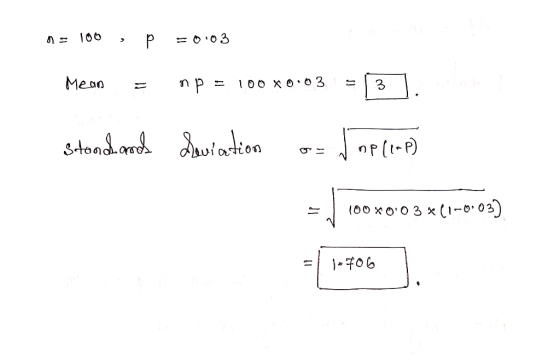 n = 100 , p = 0.03
Mean = np = 100 x 0.03 = 3 .
Standard Deviation σ = √np(1-P)
= √100 x 0.03 x (1-0.03)
= 1.706 .